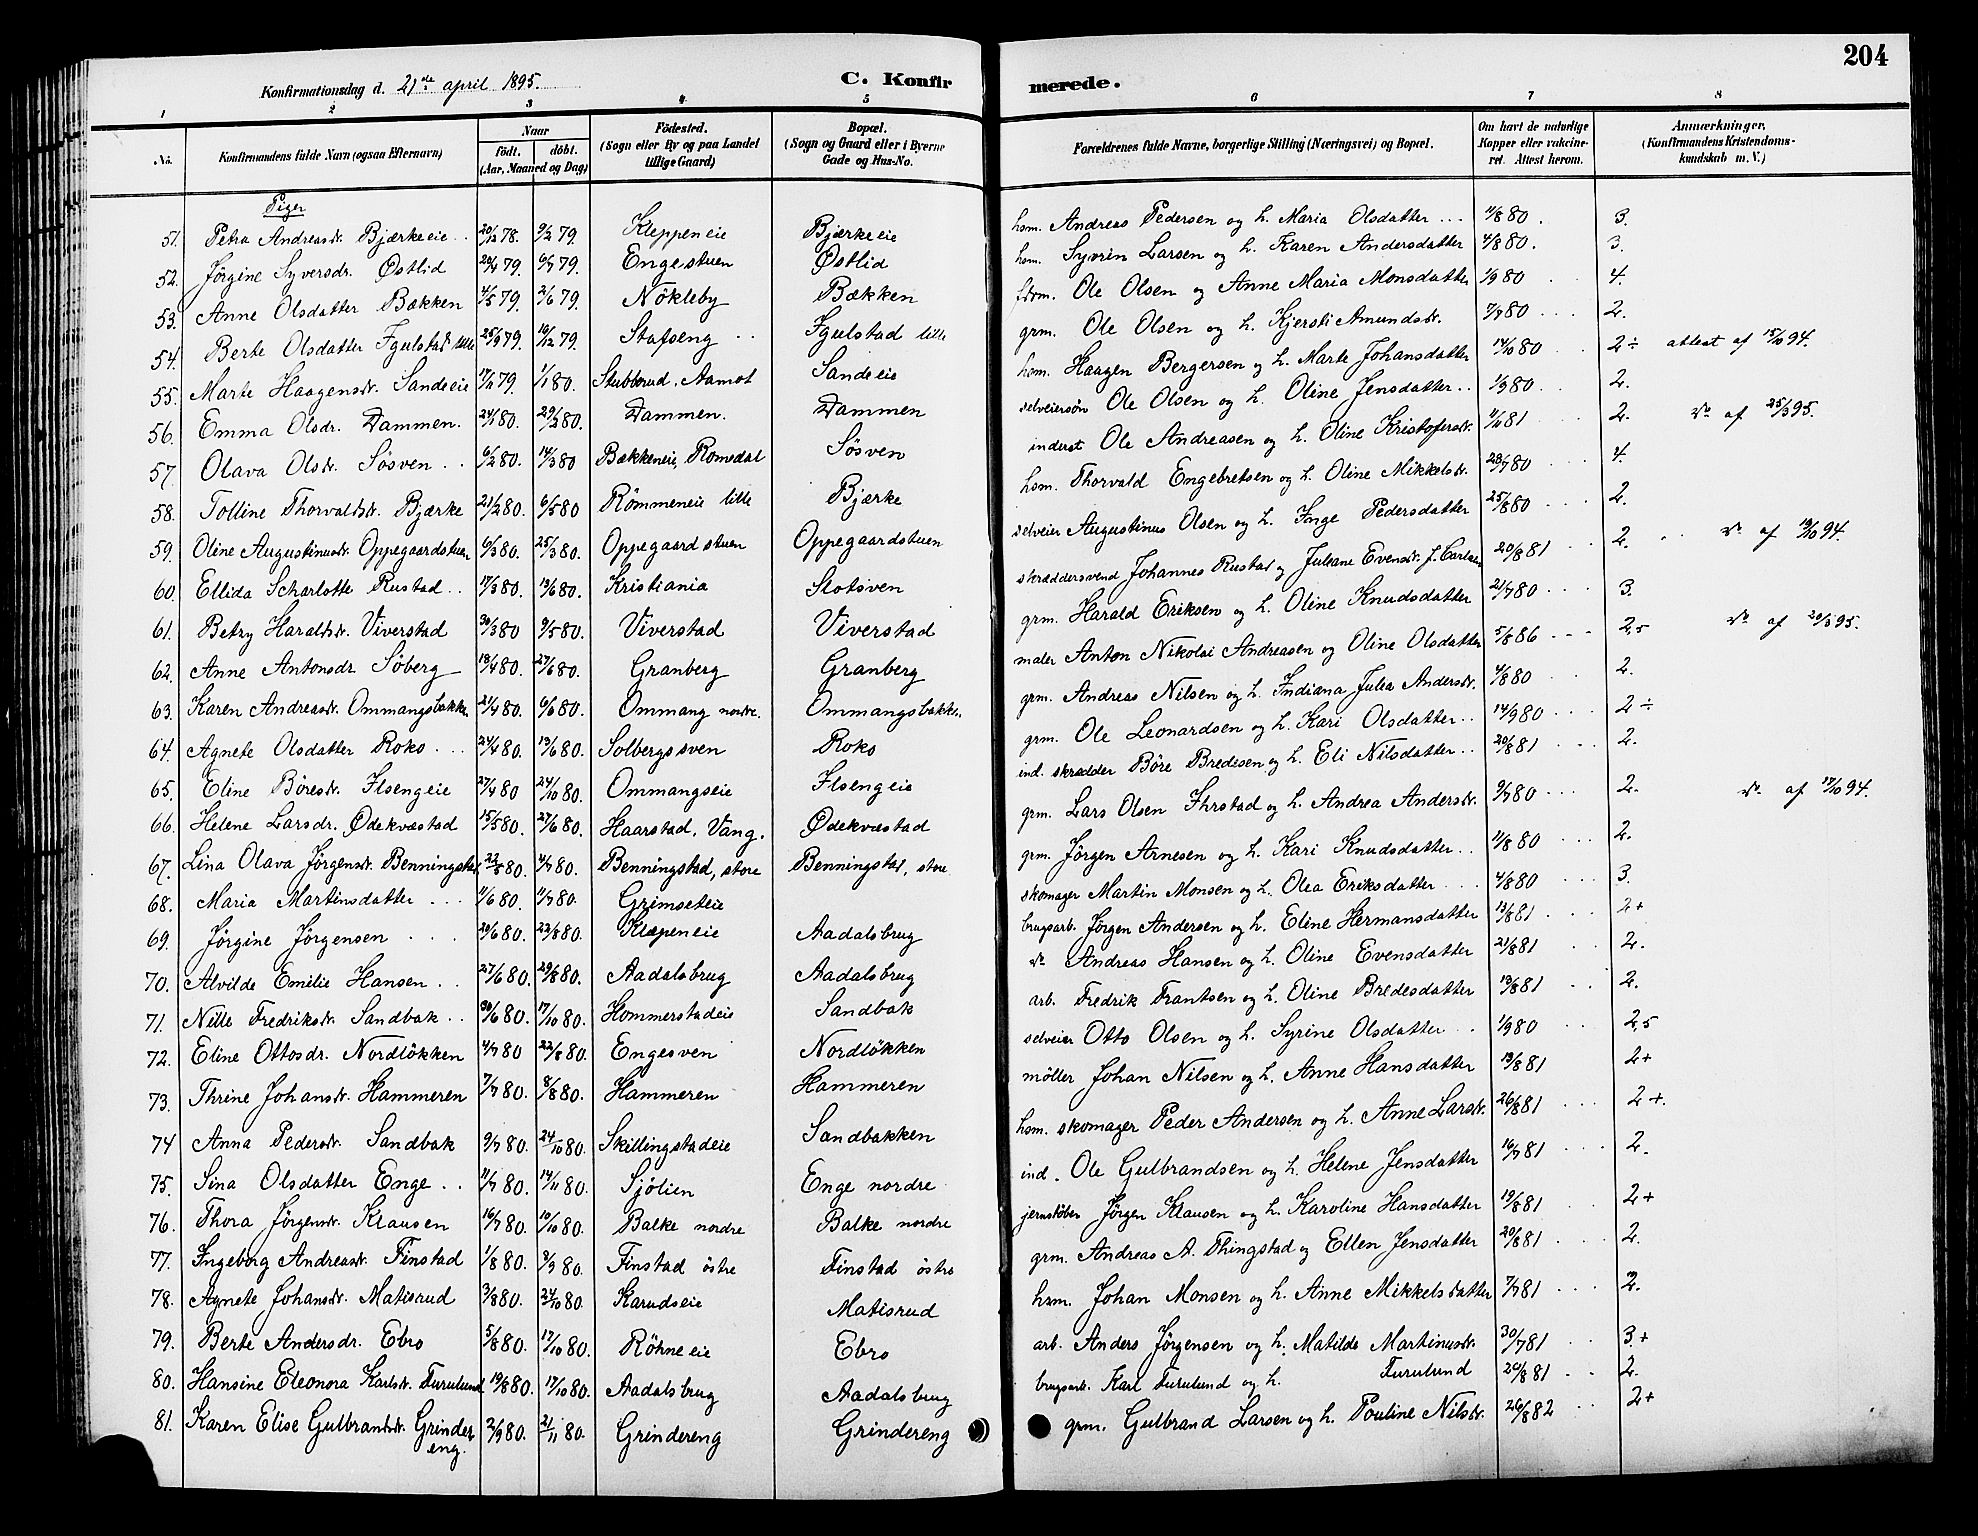 204
Konfirmationsdag d. 21de april 1895.
C. Konfirmerede.
1 2 3 4 5 6 7 8
No. | Konfirmandens fulde Navn (ogsaa Efternavn) | Naar født. døbt. (Aar, Maaned og Dag) | Fødested. (Sogn eller By og paa Landet tillige Gaard) | Bopæl. (Sogn og Gaard eller i Byerne Gade og Hus-No. | Forældrenes fulde Navne, borgerlige Stilling (Næringsvei) og Bopæl. | Om havt de naturlige Kopper eller vakcineret. Attest herom. | Anmærkninger. (Konfirmandens Kristendomskundskab m. V.)
Piger
51. Petra Andreasdr. Bjærkeeie 20/12 78. 9/2 79. Kleppeneie Bjærkeeie hsm. Andreas Pedersen og h. Maria Olsdatter 11/8 80. 3.
52. Jørgine Syversdr. Østlid 79. 6/7 79. Engestuen Østlid hsm. Syvrin Larsen og h. Karen Andersdatter 4/8 80. 3.
53. Anne Olsdatter Bakken 4/5 79. 2/6 79. Nökleby Bækken Ole Olsen og Anne Maria Monsdatter 1/9 80 4.
54. Berte Olsdatter Igulstad lille 25/9 79. 19/12 79. Stafseng Igulstad lille grm. Ole Olsen og h. Kjersti Amundsdr. 7/7 80 2.
55. Marte Haagensdr. Sandeeie 79. 1/1 80. Stubberud, Aamot Sandeeie hsm. Haagen Bergersen og h. Marte Johansdatter 14/10 80 2÷ attest af 15/10 94.
56. Emma Olsdr. Dammen. 24/1 80. 29/2 80. Dammen. Dammen selveiersøn Ole Olsen og h. Oline Jensdatter 1/9 80 2.
57. Olava Olsdr. Sösven 6/2 80. 14/3 80 Bækkeneie, Romedal Sösven inderst Ole Andreasen og h. Oline Kristofersdr. 81 2. do af 25/3 95.
58. Tolline Thorvaldsdr. Bjærke 21/2 80. 6/5 80 Römmeneie lille Bjærke hsm. Thorvald Engebretsen og h. Oline Mikkelsdr. 28/7 80 4.
59. Oline Augustinusdr. Oppegaardstuen 6/3 80. 25/3 80. Oppegaardstuen Oppegaardstuen selveier Augustinus Olsen og h. Inge Pedersdatter 25/8 80 2.
60. Ellida Scharlotte Rustad 17/3 80. 13/6 80. Kristiania Slotsven skræddersvend Johannes Rustad og Juliane Evensdr. f. Carlsen 20/8 81 2. do af 94.
61. Betzy Haraldsdr. Viverstad 30/3 80 9/5 80. Viverstad Viverstad grm. Harald Eriksen og h. Oline Knudsdatter 21/7 80 3.
62. Anne Antonsdr. Söberg 18/4 80. 27/6 80. Granberg Granberg maler Anton Nikolai Andreasen og Oline Olsdatter 5/8 86 2,5 do af 20/3 95.
63. Karen Andreasdr. Ommangsbakke. 21/4 80. 6/6 80. Ommang nordre. Ommangsbakke. grm. Andreas Nilsen og h. Indiana Julia Andersdr. 4/8 80 2.
64. Agnete Olsdatter Roko 24/4 80. 13/6 80. Solbergssven Roko grm. Ole Leonardsen og h. Kari Olsdatter 14/9 80 2÷
65. Eline Böresdr. Ilsengeie 27/4 80 24/10 80. Ommangseie Ilsengeie ind. skrædder Böre Bredesen og h. Eli Nilsdatter 20/8 81 2.
66. Helene Larsdr. Ødekvæstad 15/5 80. 27/6 80. Haarstad, Vang. Ødekvæstad grm. Lars Olsen Ihrstad og h. Andrea Andersdr. 9/7 80 2. do af 17/10 94.
67. Lina Olava Jörgensdr. Benningstad 22/5 80. 4/7 80. Benningstad, store Benningstad, store grm. Jörgen Arnesen og h. Kari Knudsdatter 11/8 80 2.
68. Maria Martinsdatter 11/6 80. 11/7 80. Grimseteie skomager Martin Monsen og h. Olea Eriksdatter 4/8 80 3.
69. Jörgine Jörgensen 20/6 80. 22/8 80. Klæpeneie Aadalsbrug brugsarb. Jörgen Andersen og h. Eline Hermansdatter 13/8 81 2+
70. Alvilde Emelie Hansen 27/6 80. 29/8 80. Aadalsbrug Aadalsbrug do Andreas Hansen og h. Oline Evensdatter 21/8 81 2.
71. Nille Fredriksdr. Sandbak 30/6 80. 17/10 80. Hommerstadeie Sandbak arb. Fredrik Frantsen og h. Oline Bredesdatter 13/8 81 2.
72. Eline Ottosdr. Nordlökken 4/7 80 22/8 80. Engesven Nordlökken selveier Otto Olsen og h. Syrine Olsdatter 1/9 80 2,5
73. Thrine Johansdr. Hammeren 7/7 80. 8/8 80. Hammeren Hammeren møller Johan Nilsen og h. Anne Hansdatter 13/8 81 2+
74 Anna Pedersdr. Sandbak 9/7 80. 24/10 80. Skillingstadeie Sandbakken hsm. skomager Peder Andersen og h. Anne Larsdr. 26/8 81 2+.
75. Sina Olsdatter Enge 11/7 80. 14/11 80. Sjölien Enge nordre ind. Ole Gulbrandsen og h. Helene Jensdatter 16/7 81 2.
76. Thora Jörgensdr. Klausen 16/7 80. 10/10 80. Balke nordre Balke nordre jernstöber Jörgen Klausen og h. Karoline Hansdatter 19/8 81 2+
77. Ingeborg Andreasdr. Finstad 1/8 80. 3/9 80. Finstad östre Finstad östre grm. Andreas A. Thingstad og Ellen Jensdatter 20/8 81 2.
78. Agnete Johansdr. Matisrud 3/8 80. 24/10 80. Karudseie Matisrud hsm. Johan Monsen og h. Anne Mikkelsdatter 7/7 81 2.
79. Berte Andersdr. Ebro 5/8 80. 17/10 80. Röhneeie Ebro arb. Anders Jörgensen og h. Matilde Martinusdr. 30/7 81 3+
80. Hansine Eleonora Karlsdr. Furulund 19/8 80. 17/10 80. Aadalsbrug Aadalsbrug brugsarb. Karl Furulund og h. Furulund 20/8 81 2.
81. Karen Elise Gulbrandsdr. Grindereng. 2/9 80. 21/11 80. Grindereng Grindereng grm. Gulbrand Larsen og h. Pouline Nilsdr. 26/8 82 2+